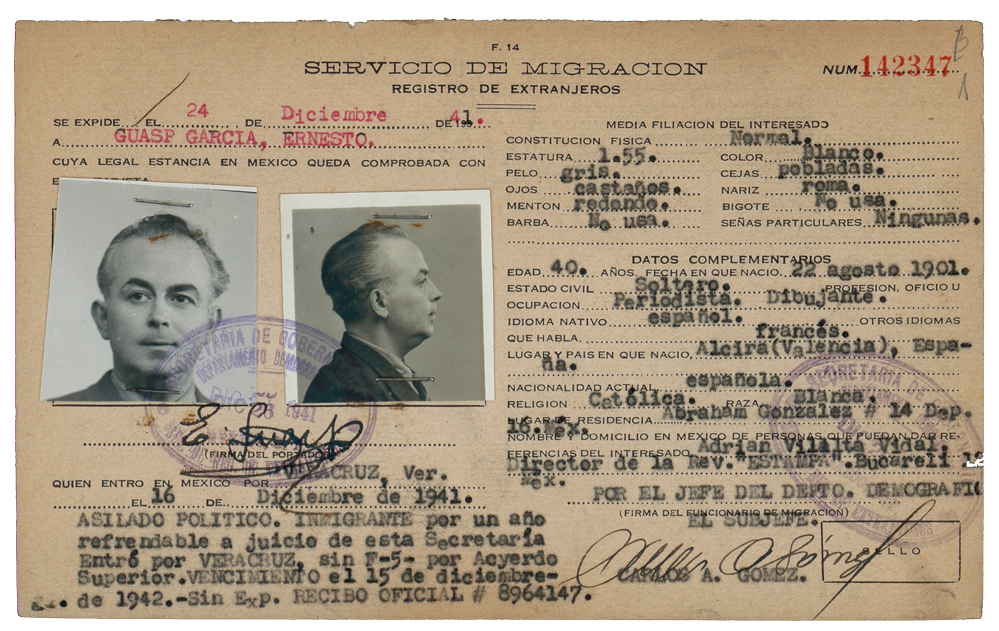 F. 14
SERVICIO DE MIGRACION
REGISTRO DE EXTRANJEROS
NUM. 142347
SE EXPIDE EL 24 DE Diciembre DE 1941.
A GUASP GARCIA, ERNESTO.
CUYA LEGAL ESTANCIA EN MEXICO QUEDA COMPROBADA CON
E. Guasp
(FIRMA DEL PORTADOR)
QUIEN ENTRO EN MEXICO POR VERACRUZ, Ver.
EL 16 DE Diciembre de 1941.
ASILADO POLITICO. INMIGRANTE por un año
refrendable a juicio de esta Secretaría
Entró por VERACRUZ, sin F-5- por Acuerdo
Superior.VENCIMIENTO el 15 de diciembre-
de 1942.-Sin Exp. RECIBO OFICIAL # 8964147.
MEDIA FILIACION DEL INTERESADO
CONSTITUCION FISICA Normal.
ESTATURA 1.55. COLOR Blanco.
PELO gris. CEJAS pobladas.
OJOS castaños. NARIZ roma.
MENTON redondo. BIGOTE No usa.
BARBA No usa. SEÑAS PARTICULARES Ningunas.
DATOS COMPLEMENTARIOS
EDAD 40. AÑOS. FECHA EN QUE NACIO 22 agosto 1901.
ESTADO CIVIL Soltero. PROFESION, OFICIO U
OCUPACION Periodista. Dibujante.
IDIOMA NATIVO español. OTROS IDIOMAS
QUE HABLA. francés.
LUGAR Y PAIS EN QUE NACIO Alcira(Valencia), Espa-
ña.
NACIONALIDAD ACTUAL española.
RELIGION Católica. RAZA Blanca.
LUGAR DE RESIDENCIA Abraham Gonzalez # 14 Dep.
16. Mex.
NOMBRE Y DOMICILIO EN MEXICO DE PERSONAS QUE PUEDAN DAR RE-
FERENCIAS DEL INTERESADO Adrian Vilalta Vidal.
Director de la Rev."ESTAMPA".Bucareli
Mex.
POR EL JEFE DEL DEPTO. DEMOGRAFIC
(FIRMA DEL FUNCIONARIO DE MIGRACION)
EL SUBJEFE.
CARLOS A. GOMEZ.
SELLO